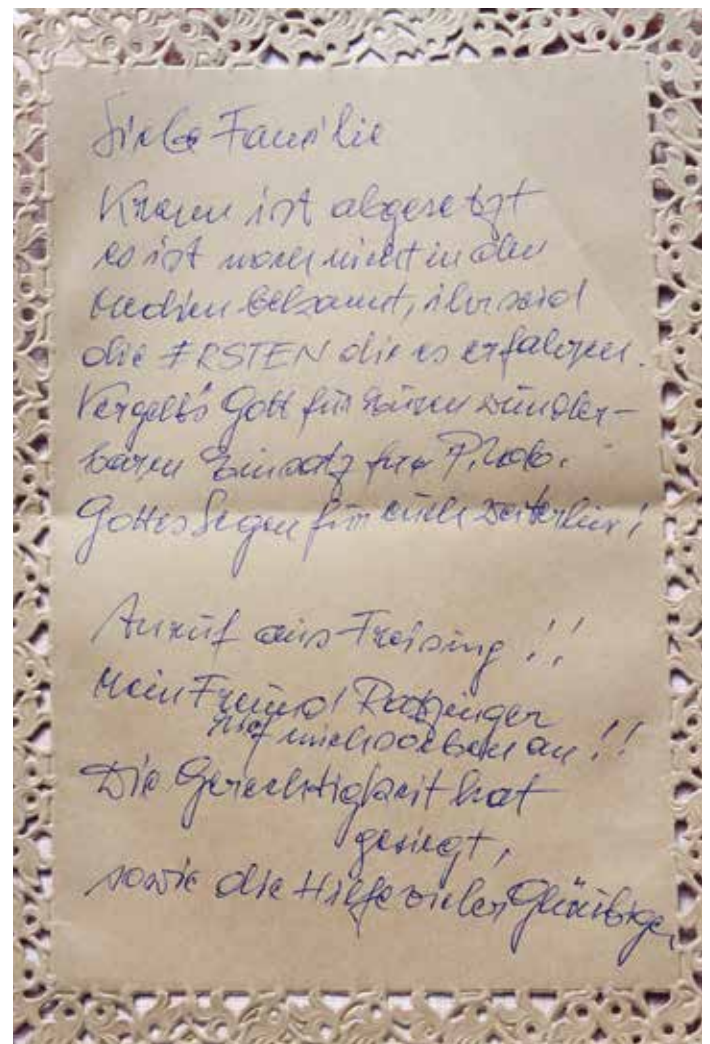 Liebe Familie
Krenn ist abgesetzt
es ist noch nicht in den
Medien bekannt, ihr seid
die ERSTEN die es erfahren.
Vergelt's Gott für Euren wunder-
baren Einsatz für
Gottes Segen für euch weiterhin!
Anruf aus Freising!!
Mein Freund Ratzinger
rief mich soeben an!!
Die Gerechtigkeit hat
gesiegt,
sowie die Hilfe vieler Gläubigen